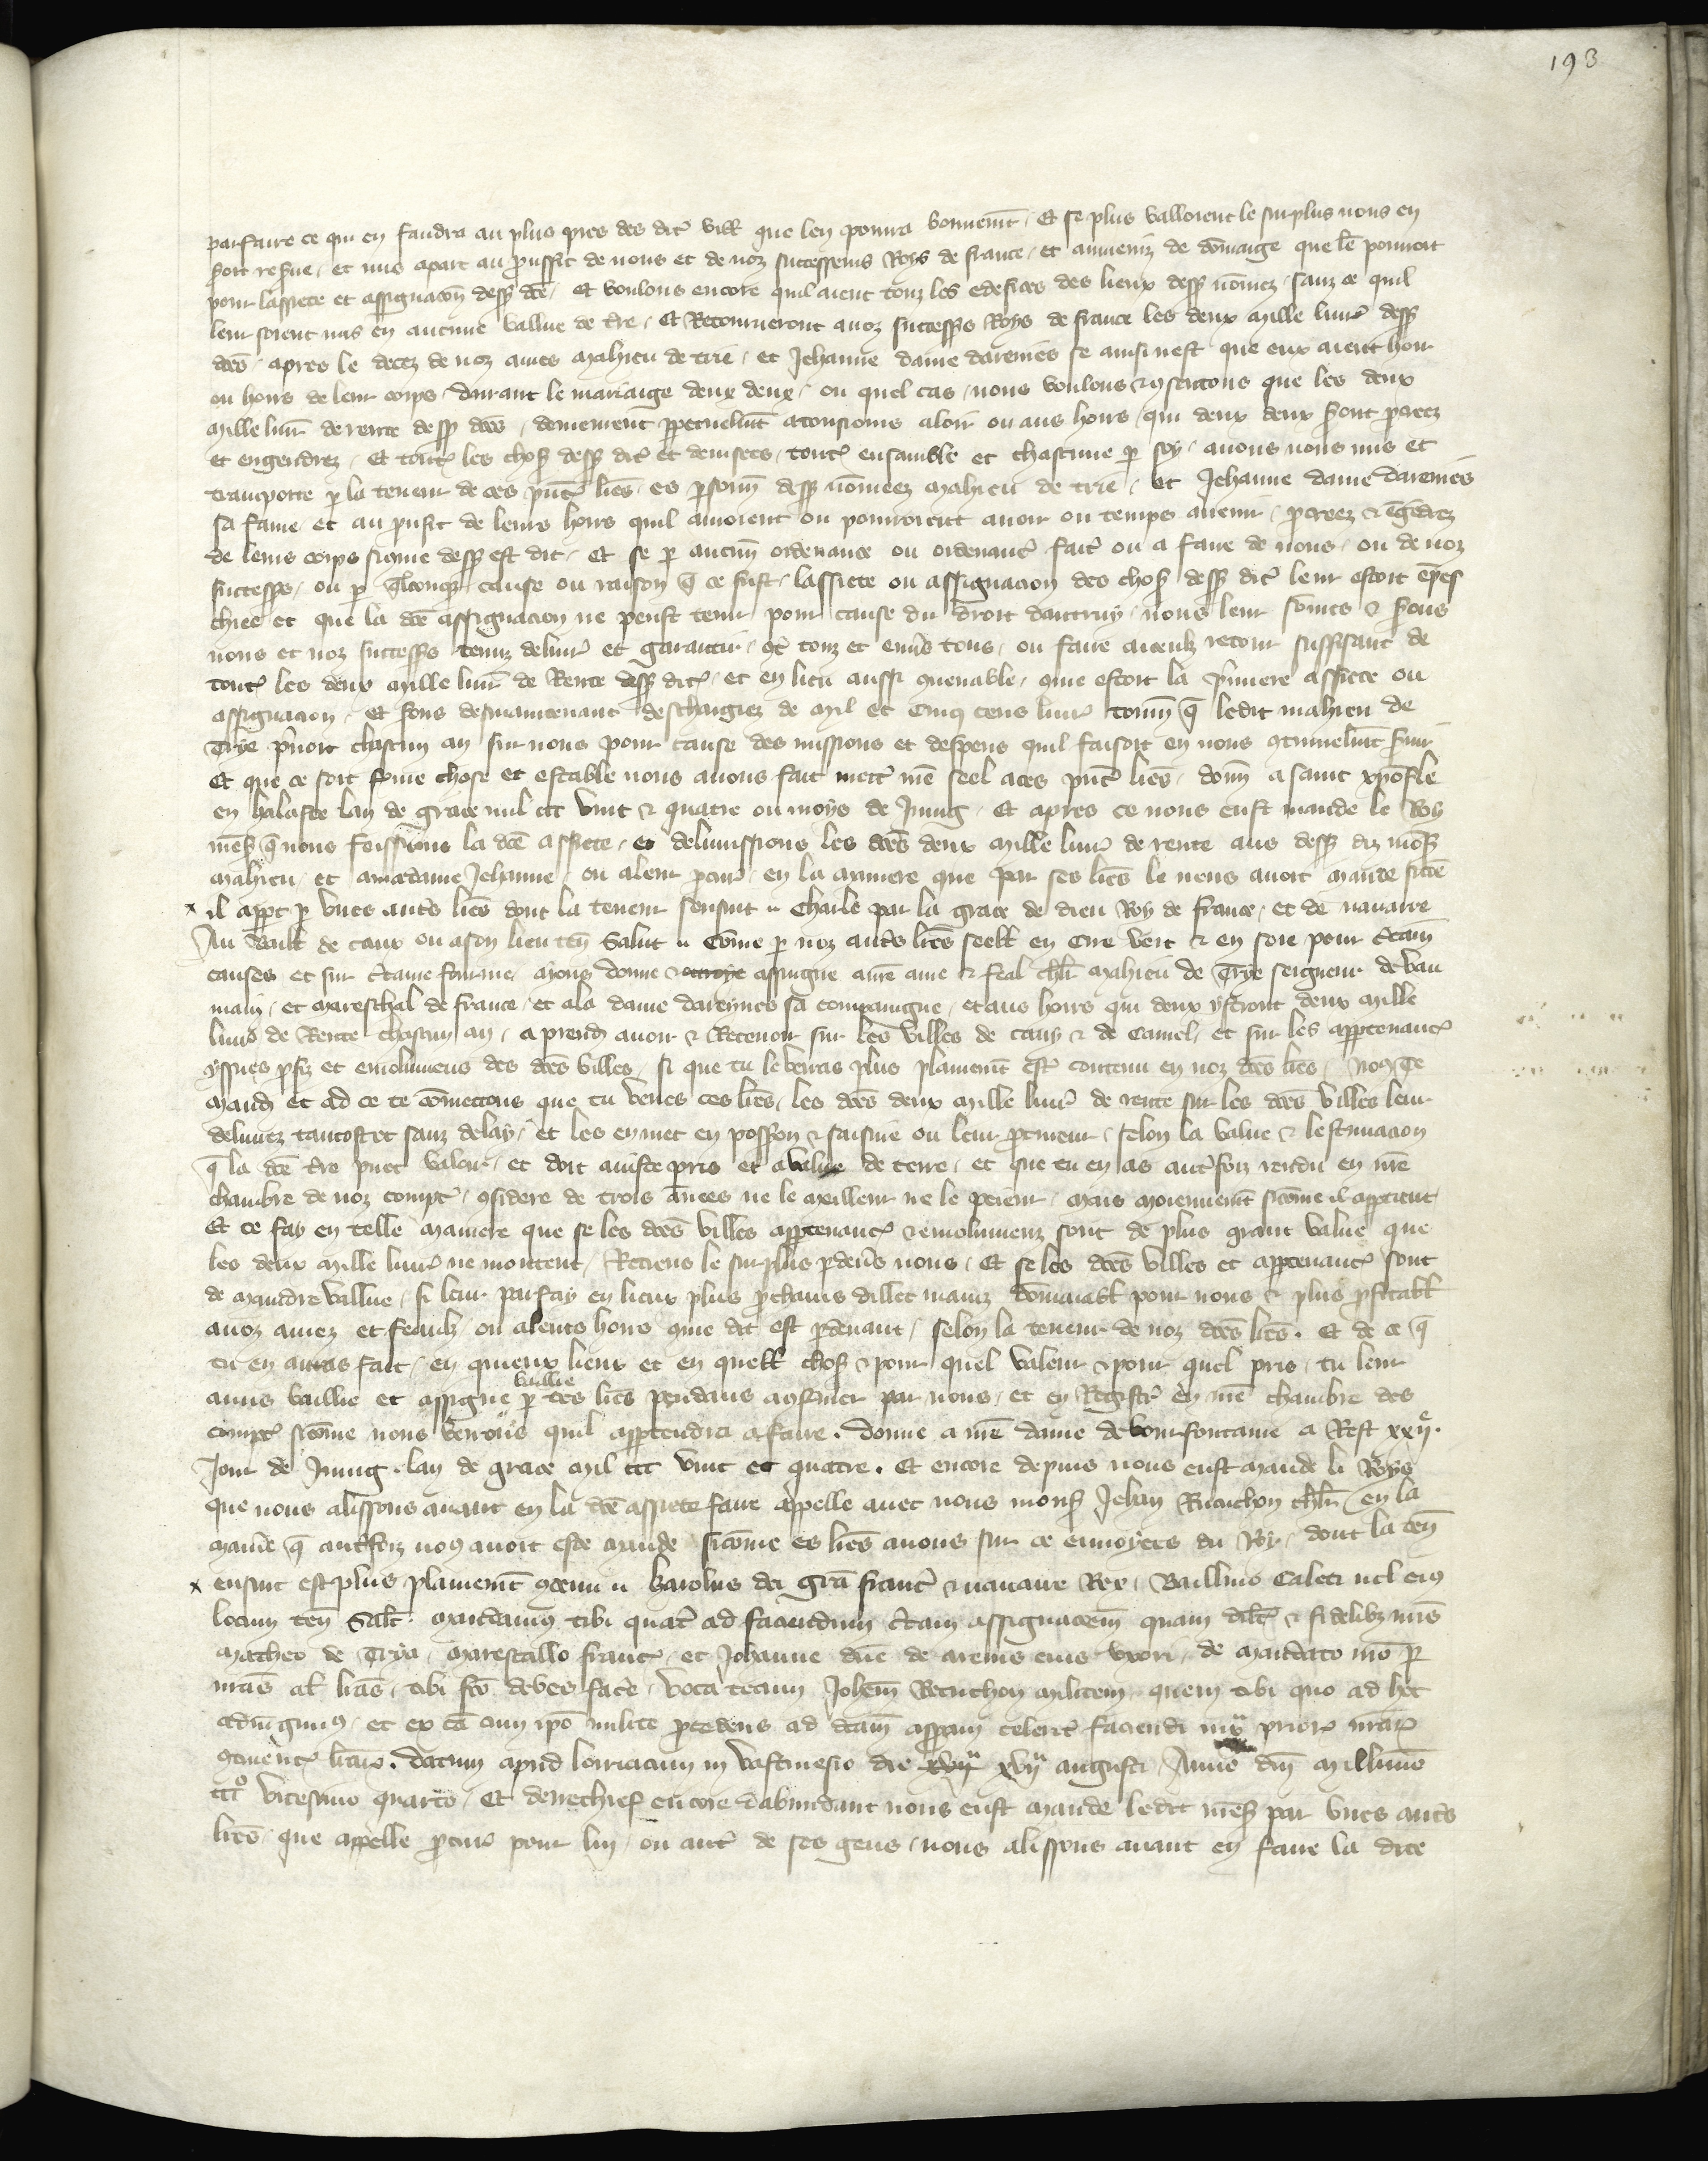 193
parfaire ce qui en faudra au plus pres des dit̃ vill̃ que len pourra bonnemt̃ / Et se plus valloient le surplus nous en
soit reẜue / et mis apart au prouffit de nous et de noz successeurs Roys de france / et aumeniz de dõmaige que lẽ pourroit
pour lassiete et assignacõn desẜ dcẽ / Et voulons encore quil aient touz les edefices des lieux desẜ nõmez / sanz ce quil
leur soient mis en aucune vallue de tr̃e / Et Retourneront a noz successr̃s Roys de france les deux Mille liur̃ desẜ
dcẽs / apres le decez de noz amés Mahieu de trie / et Jehanne dame darennes se ainsi nest que eux aient hoir
ou hoirs de leur corps / durant le mariaige deux deux / ou quel cas / nous voulons & ɔsentons que les deux
Mille liur̃ de rente desẜ dcẽs / demeurent ꝑpetuelmt̃ a tousiours a loir ou aus hoirs / qui deux deux ẜont ꝓcreez
et engendrez / Et tout̃ les choẜ desẜ dit̃ et deuisees / tout̃ ensamble et chascune ꝑ soy / auons nous mis et
transporte ꝑ la teneur de ces p̃nt̃ lr̃es / es ꝑsonn̄ desẜ nõmees Mahieu de trie / et Jehanne dame darennes
sa fame / et au prufit de leurs hoirs quil auroient ou pourroient auoir ou temps auenir / ꝓcreez & ẽgẽdrez
de leurs corps sicome desẜ est dit / Et se ꝑ aucun̄ ordenance ou ordenanc̃ fait̃ ou a faire de nous / ou de noz
successr̃s / ou ꝑ q̃lconq̃ cause ou raison q̃ ce fust / lassiete ou assignacion des choẜ desẜ dit̃ leur estoit ẽpes
chiee et que la dcẽ assignacion ne peust tenir pour cause du droit dautruy / nous leur sõmes & ẜons
nous et noz successr̃s tenuz deliurer et garantir / ɔt̃ touz et enũs tous / ou faire aceulz retour suffisant de
tout̃ les deux Mille liur̃ de Rente desẜ dit̃ / et en lieu aussi ɔuenable / ɔme estoit la p̃miere assiete ou
assignacion / Et ẜons desmaintenant deschargiez de Mil et Cinq cens liur̃ tourn̄ q̃ ledit mahieu de
Trye p̃noit chascun an sur nous pour cause des missions et despens quil faisoit en nous ɔtinuelmt̃ seruir
Et que ce soit ferme chose et estable nous auons fait mettr̃ nr̃e seel a ces p̃nt̃ lr̃es / donn̄ a saint xp̃ofle
en halaste lan de grace mil ccc vint & quatre ou moys de Juing / Et apres ce nous eust mande le Roy
nr̃eẜ q̃ nous feissions la dcẽ assiete / et deliurissions les dcẽs deux Mille liur̃ de rente aus desẜ diz monẜ
Mahieu / et a madame Jehanne / ou a leur ꝓcur̃ / en la maniere que par ses lr̃es le nous auoit mande sicõe
x il appt̃ ꝑ vnes autr̃s lr̃es dont la teneur sensuit // Charle par la grace de dieu Roy de france / et de nauarre
Au Baill̃ de caux ou a son lieu ten̄ Salut // Cõme ꝑ noz autr̃s lr̃es seell̃ en cire vert & en soie pour ct̃ain̄
causes et sur ct̃aine fourme / Aions donne & assingne a nr̃e ame & feal chl̃r Mahieu de Trye seigneur de vau
main / et Mareschal de france / et a la dame darennes sa compaingne / et aus hoirs qui deux ystront deux Mille
liur̃ de Rente chascun an / a prendr̃ auoir & Receuoir sur les villes de cany & de Caniel / et sur les appartenanc̃
yssues ꝓfiz et emolumens des dcẽs villes / si que tu le verras plus plainemt̃ estr̃ contenu en noz dcẽs lr̃es / Nous te
Mandõs et ad ce te cõmettons que tu veues ces lr̃es / les dcẽs deux Mille liur̃ de rente sur les dcẽs villes leur
deliurez tantost et sanz delay / Et les en met en possion & saisine ou leur ꝓcureur / selon la value & lestimacion
q̃ la dcẽ tr̃e puet valoir / et doit a iuste pris et a value de terre / et que tu en as autr̃foiz rendu en nr̃e
chambre de noz compt̃ / ɔsidere de trois añees ne le meilleur ne le peieur / Mais moiennemt̃ sicõme il appartient
Et ce fay en telle maniere que se les dcẽs villes appartenanc̃ & emolumenz sont de plus grant value que
les deux Mille liur̃ ne montent / Retiens le surplus ꝑdeũs nous / Et se les dcẽs villes et appartenanc̃ sont
de Maindre vallue / si leur parfay en lieux plus ꝓchains dillec mainz dõmaiabl̃ pour nous & plus ꝓfitabl̃
a noz amez et feaulz / ou a leurs hoirs ɔme dit est ꝑdeuant / selon la teneur de noz dcẽs lr̃es . Et de ce q̃
tu en auras fait / en quieux lieux et en quell̃ choẜ & pour quel valeur & pour quel pris / tu leur
auras baillie et assigne ꝑ baillie tes lr̃es pendans a ɔfermer par nous / et en Registr̃ en nr̃e chambre des
compt̃ sicõme nous verrons quil appartendra a faire . Donne a nr̃e dame de bonne fontaine a Rest xxij.e
Jour de Juing . lan de grace Mil ccc vint et quatre . Et encore depuis nous eust mande li Roys
que nous alissions auant en la dcẽ assiete faire appelle auec nous monẜ Jehan Ricuchon chl̃r / en la
manie᷑ q̃ autr̃foiz nous auoit este mande / sicõme es lr̃es auons sur ce enuoyees du Roy / dont la ten̄
x ensuit est plus plainemt̃ ɔtenu // Karolus dei gr̃a franc̃ & nauarre Rex / Balliuo Caleti uel eius
locum ten̄ Salt̃ . Mandamus tibi quat̃ ad faciendum ct̃am assignacõem̄ quam dilc̃t̃ & fidelibz nr̃is
Matheo de Trya / Marescallo franc̃ / et Johanne dñe de arenis eius vxori / de Mandato nr̃o ꝑ
nr̃as al̃ lr̃as / tibi fc̃o debes facẽ / voca tecum Johẽm Recuchon militem / quem tibi quo ad hec
adiũgimus / et ex cã cum ip̃o milite ꝓcedens ad dc̃am assig̃m celerit̃ faciendũ iux̃ prior̃ nr̃ar̃
ɔtinenc̃ lr̃ar̃ . Datum apud lorriacum in vastinesio die xvij.a xvij.a augusti / Anno dñi Millimo
ccc.o vicesimo quarto / Et derechief encore dabundant nous eust mande ledit nr̃eẜ par vnes autr̃s
lr̃es / que appelle ꝓcur̃ pour lui / ou autr̃ de ses gens / nous alissions auant en faire la dite